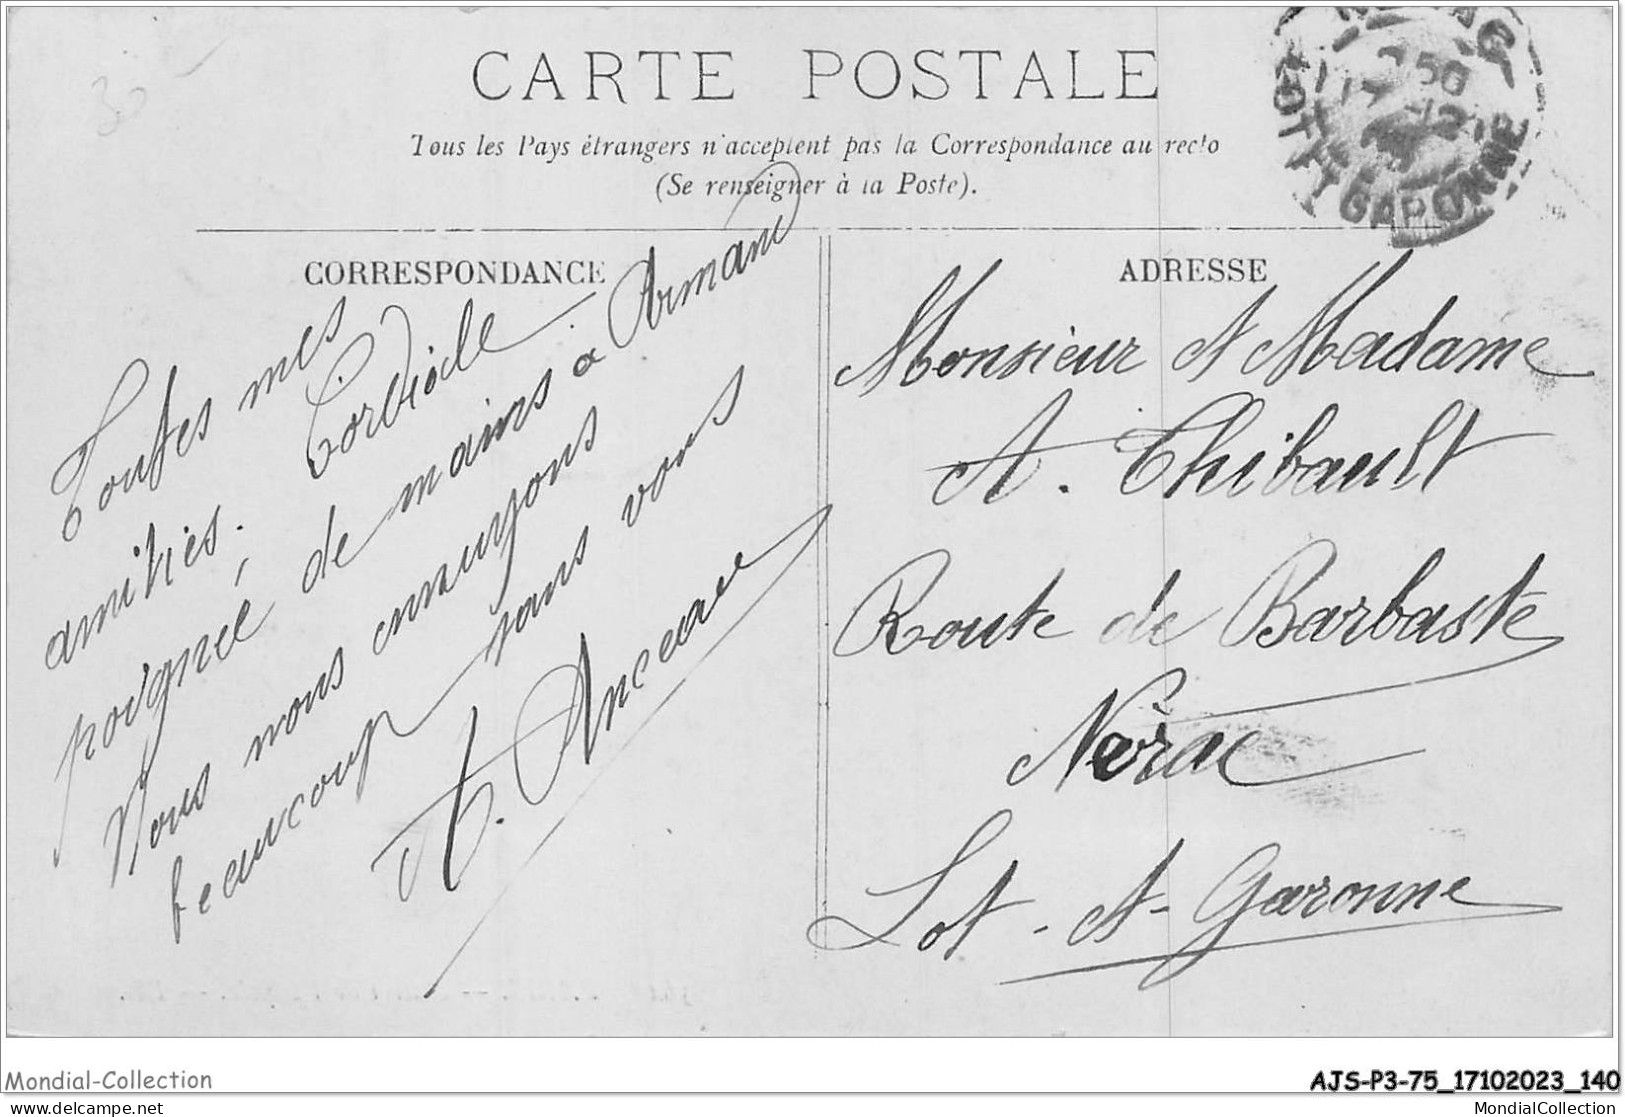 CARTE POSTALE
Tous les Pays étrangers n'acceptent pas la Correspondance au recto
(Se renseigner à la Poste).
CORRESPONDANCE
Toutes mes
amitiés. Cordiale
poignée de mains à Armand
Nous nous ennuyons
beaucoup sans vous
A. Anceau
ADRESSE
Monsieur et Madame
A. Thibault
Route de Barbaste
Nérac
Lot-et-Garonne
LOT-ET-GARONNE
30
Mondial-Collection
AJS-P3-75_17102023_140
MondialCollection